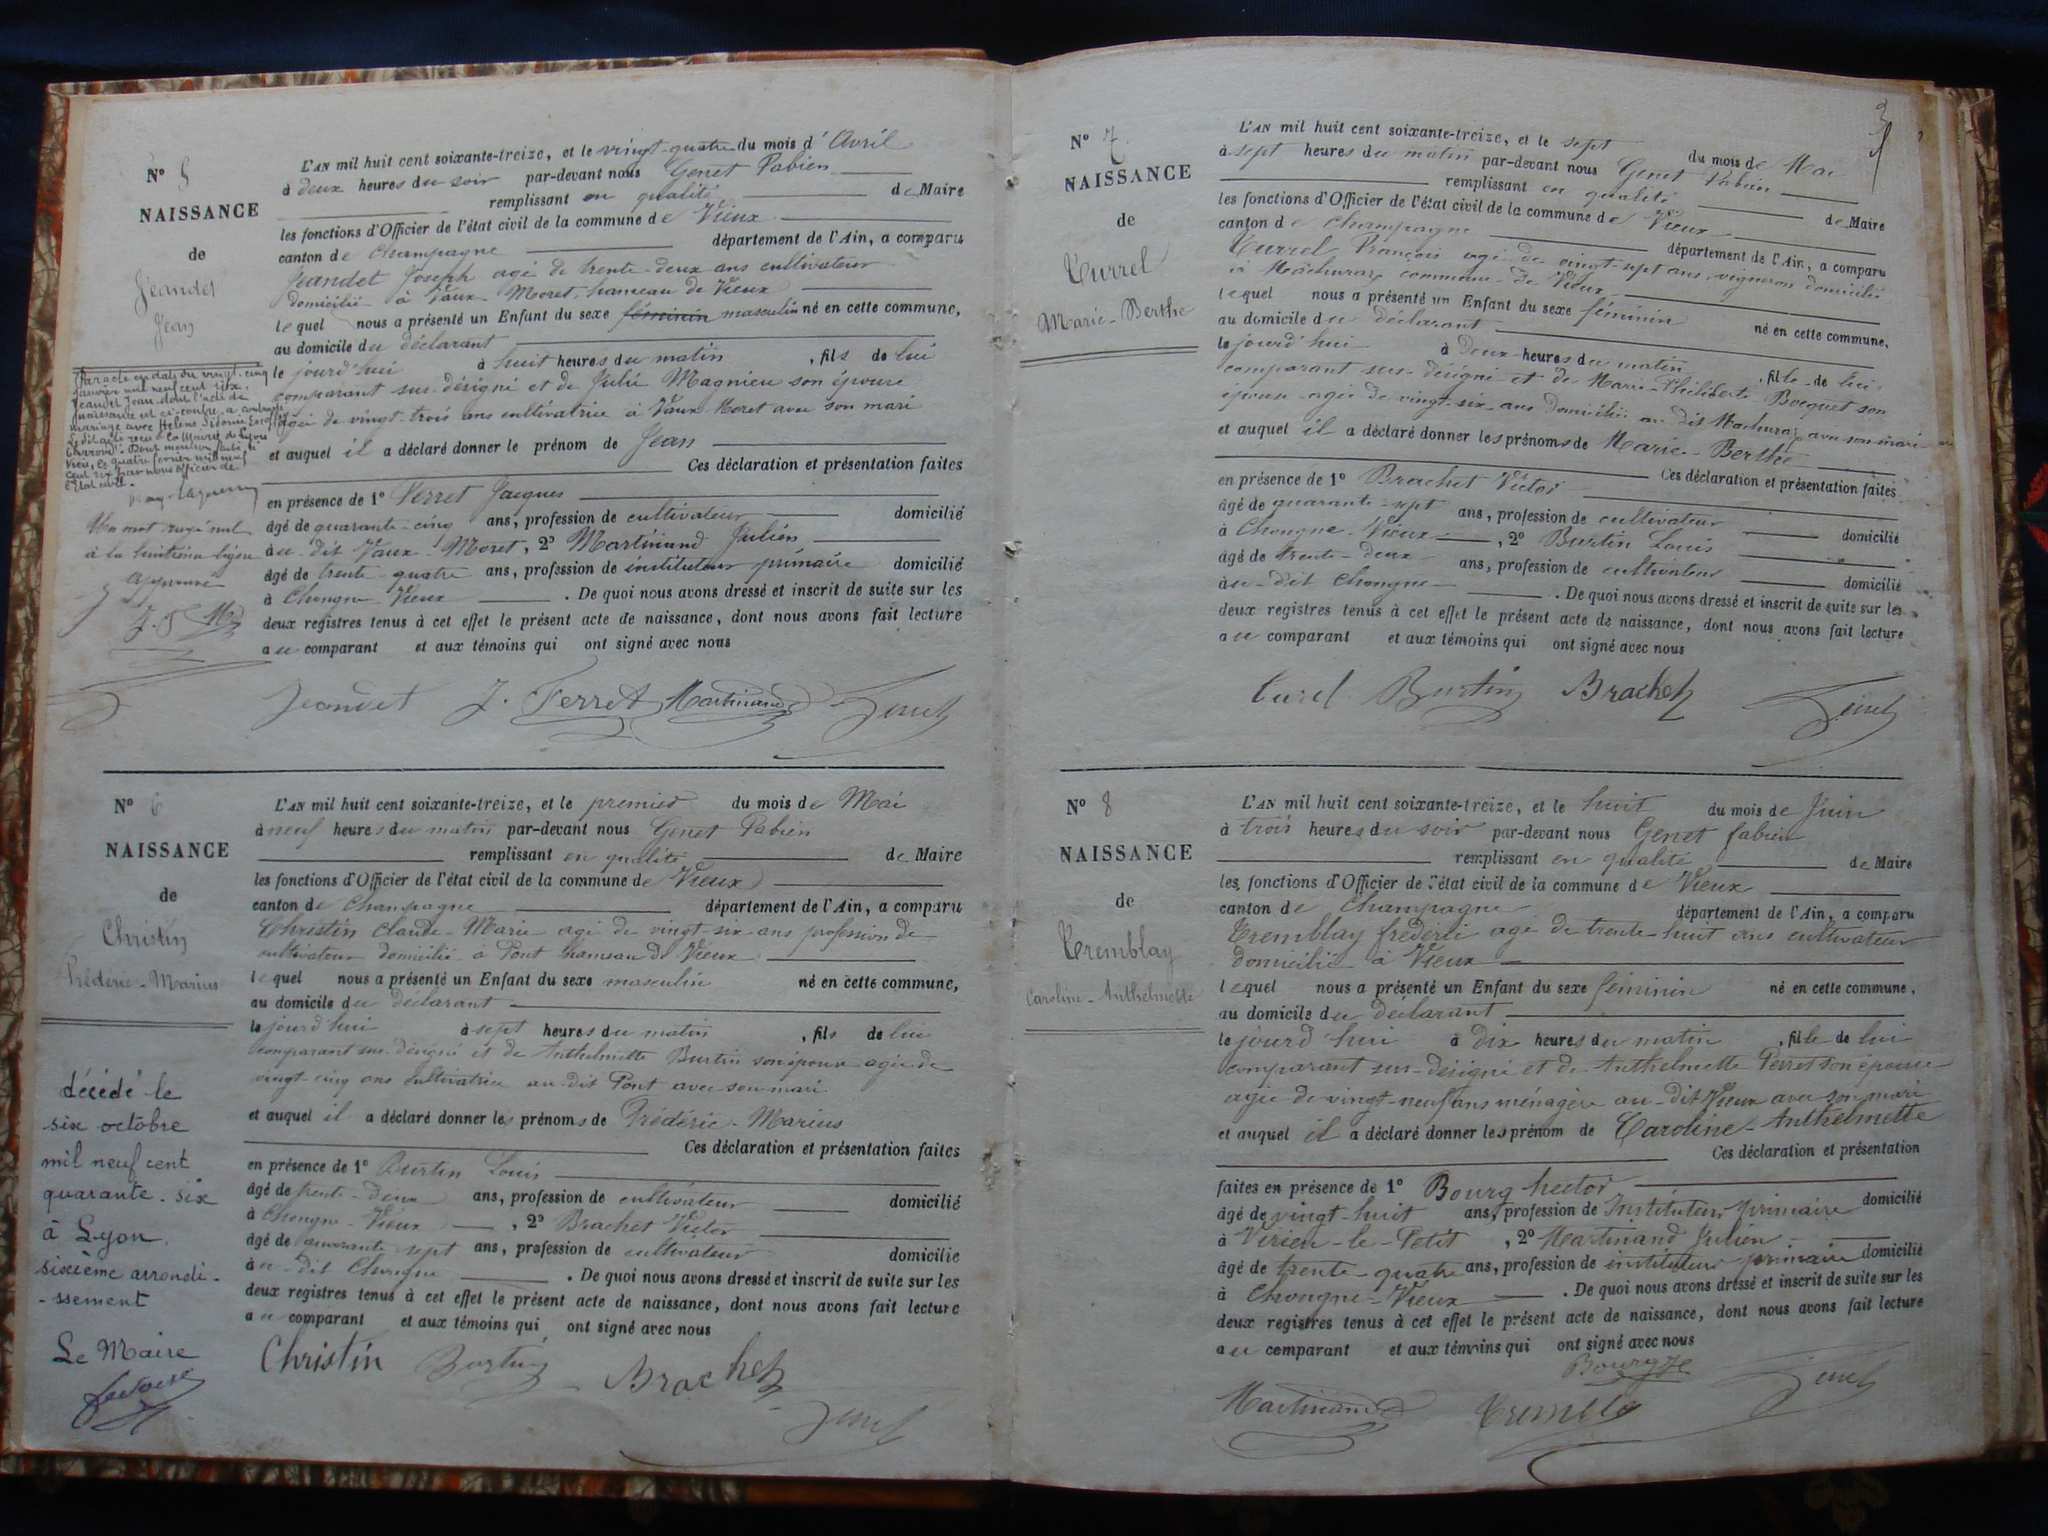 N° 5
NAISSANCE
de
Jeandet
Jean
L'AN mil huit cent soixante-treize, et le vingt-quatre du mois d'Avril
à deux heures du soir par-devant nous Genet Fabien
remplissant en qualité de Maire
les fonctions d'Officier de l'état civil de la commune de Vieux
canton de Champagne département de l'Ain, a comparu
Jeandet Joseph agé de trente-deux ans cultivateur
domicilié à Vaux-Moret, hameau de Vieux
lequel nous a présenté un Enfant du sexe féminin masculin né en cette commune,
au domicile du déclarant
le jourd'hui à huit heures du matin, fils de lui
comparant sus-désigné et de Julie Magnieu son épouse
agée de vingt-trois ans cultivatrice à Vaux-Moret avec son mari
et auquel il a déclaré donner le prénom de Jean
Ces déclaration et présentation faites
en présence de 1° Verret Jacques
âgé de quarante-cinq ans, profession de cultivateur domicilié
àu-dit Vaux-Moret, 2° Martinand Julien
âgé de trente-quatre ans, profession de instituteur primaire domicilié
à Chongne-Vieux. De quoi nous avons dressé et inscrit de suite sur les
deux registres tenus à cet effet le présent acte de naissance, dont nous avons fait lecture
au comparant et aux témoins qui ont signé avec nous
Jeandet J. Ferret Martinand Genet
Par acte en date du vingt-cinq
Janvier mil neuf cent six,
Jeandet Jean dont l'acte de
naissance est ci-contre, a contracté
mariage avec Hélène Sidonie
Un mot rayé nul
à la huitième ligne
approuvé
N° 6
NAISSANCE
de
Christin
Frédéric-Marius
L'AN mil huit cent soixante-treize, et le premier du mois de Mai
à neuf heures du matin par-devant nous Genet Fabien
remplissant en qualité de Maire
les fonctions d'Officier de l'état civil de la commune de Vieux
canton de Champagne département de l'Ain, a comparu
Christin Claude-Marie agé de vingt-six ans profession de
cultivateur domicilié à Pont hameau de Vieux
lequel nous a présenté un Enfant du sexe masculin né en cette commune,
au domicile du déclarant
le jourd'hui à sept heures du matin, fils de lui
comparant sus-désigné et de Anthelmette Burtin son épouse agée de
vingt-cinq ans cultivatrice au-dit Pont avec son mari
et auquel il a déclaré donner les prénoms de Frédéric-Marius
Ces déclaration et présentation faites
en présence de 1° Burtin Louis
âgé de trente-deux ans, profession de cultivateur domicilié
à Chongne-Vieux, 2° Brachet Victor
âgé de quarante-sept ans, profession de cultivateur domicilié
àu-dit Chongne. De quoi nous avons dressé et inscrit de suite sur les
deux registres tenus à cet effet le présent acte de naissance, dont nous avons fait lecture
au comparant et aux témoins qui ont signé avec nous
Christin Burtin Brachet
Genet
décédé le
six octobre
mil neuf cent
quarante-six
à Lyon
sixième arrondi-
-ssement
Le Maire
N° 7
NAISSANCE
de
Turrel
Marie-Berthe
L'AN mil huit cent soixante-treize, et le sept du mois de Mai
à sept heures du matin par-devant nous Genet Fabien
remplissant en qualité de Maire
les fonctions d'Officier de l'état civil de la commune de Vieux
canton de Champagne département de l'Ain, a comparu
Turrel François agé de vingt-sept ans, vigneron domicilié
à Machuraz commune de Vieux
lequel nous a présenté un Enfant du sexe féminin né en cette commune,
au domicile du déclarant
le jourd'hui à deux heures du matin, fille de lui
comparant sus-désigné et de Marie-Philiberte Bocquet son
épouse agée de vingt-six ans domiciliée au dit Machuraz avec son mari
et auquel il a déclaré donner les prénoms de Marie-Berthe
Ces déclaration et présentation faites
en présence de 1° Brachet Victor
âgé de quarante-sept ans, profession de cultivateur domicilié
à Chongne-Vieux, 2° Burtin Louis
âgé de trente-deux ans, profession de cultivateur domicilié
àu-dit Chongne. De quoi nous avons dressé et inscrit de suite sur les
deux registres tenus à cet effet le présent acte de naissance, dont nous avons fait lecture
au comparant et aux témoins qui ont signé avec nous
Turel Burtin Brachet Genet
N° 8
NAISSANCE
de
Tremblay
Caroline-Anthelmette
L'AN mil huit cent soixante-treize, et le huit du mois de Juin
à trois heures du soir par-devant nous Genet fabien
remplissant en qualité de Maire
les fonctions d'Officier de l'état civil de la commune de Vieux
canton de Champagne département de l'Ain, a comparu
Tremblay fréderic agé de trente-huit ans cultivateur
domicilié à Vieux
lequel nous a présenté un Enfant du sexe féminin né en cette commune,
au domicile du déclarant
le jourd'hui à dix heures du matin, fille de lui
comparant sus-désigné et de Anthelmette Perret son épouse
agée de vingt-neuf ans ménagère au-dit Vieux avec son mari
et auquel il a déclaré donner les prénom de Caroline-Anthelmette
Ces déclaration et présentation
faites en présence de 1° Bourg hector
âgé de vingt-huit ans, profession de Instituteur primaire domicilié
à Virieu-le-Petit, 2° Martinand Julien
âgé de trente-quatre ans, profession de instituteur primaire domicilié
à Chongne-Vieux. De quoi nous avons dressé et inscrit de suite sur les
deux registres tenus à cet effet le présent acte de naissance, dont nous avons fait lecture
au comparant et aux témoins qui ont signé avec nous
Martinand Tremblay Genet